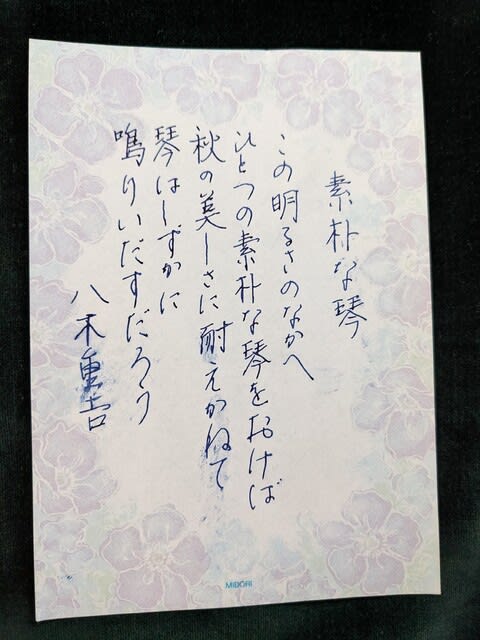 素朴な琴
この明るさのなかへ
ひとつの素朴な琴をおけば
秋の美しさに耐えかねて
琴はしずかに
鳴りいだすだろう
八木重吉
MIDORI